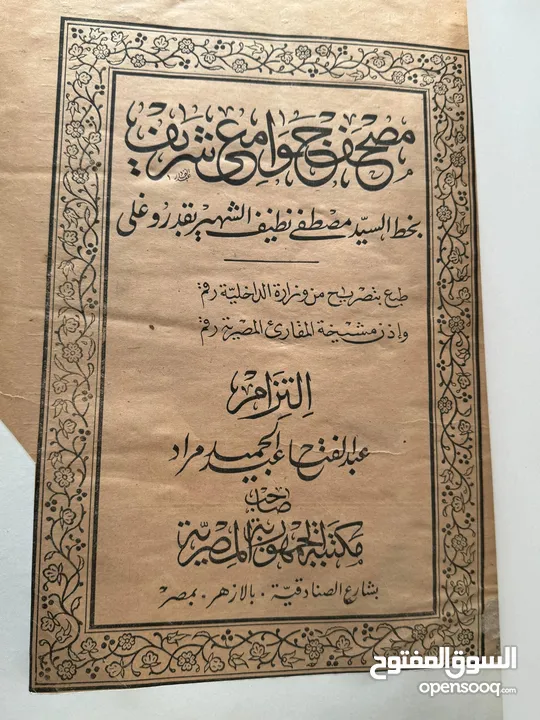 مصحف جوامعى شريف
بخط السيد مصطفى نظيف الشهير بقدروغلى
طبع بتصريح من وزارة الداخلية رقم
وإذن مشيخة المقارئ المصرية رقم
التزام
عبد الفتاح عبد الحميد مراد
صاحب
مكتبة الجمهورية المصرية
بشارع الصنادقية . بالازهر . بمصر
السوق المفتوح
opensooq.com